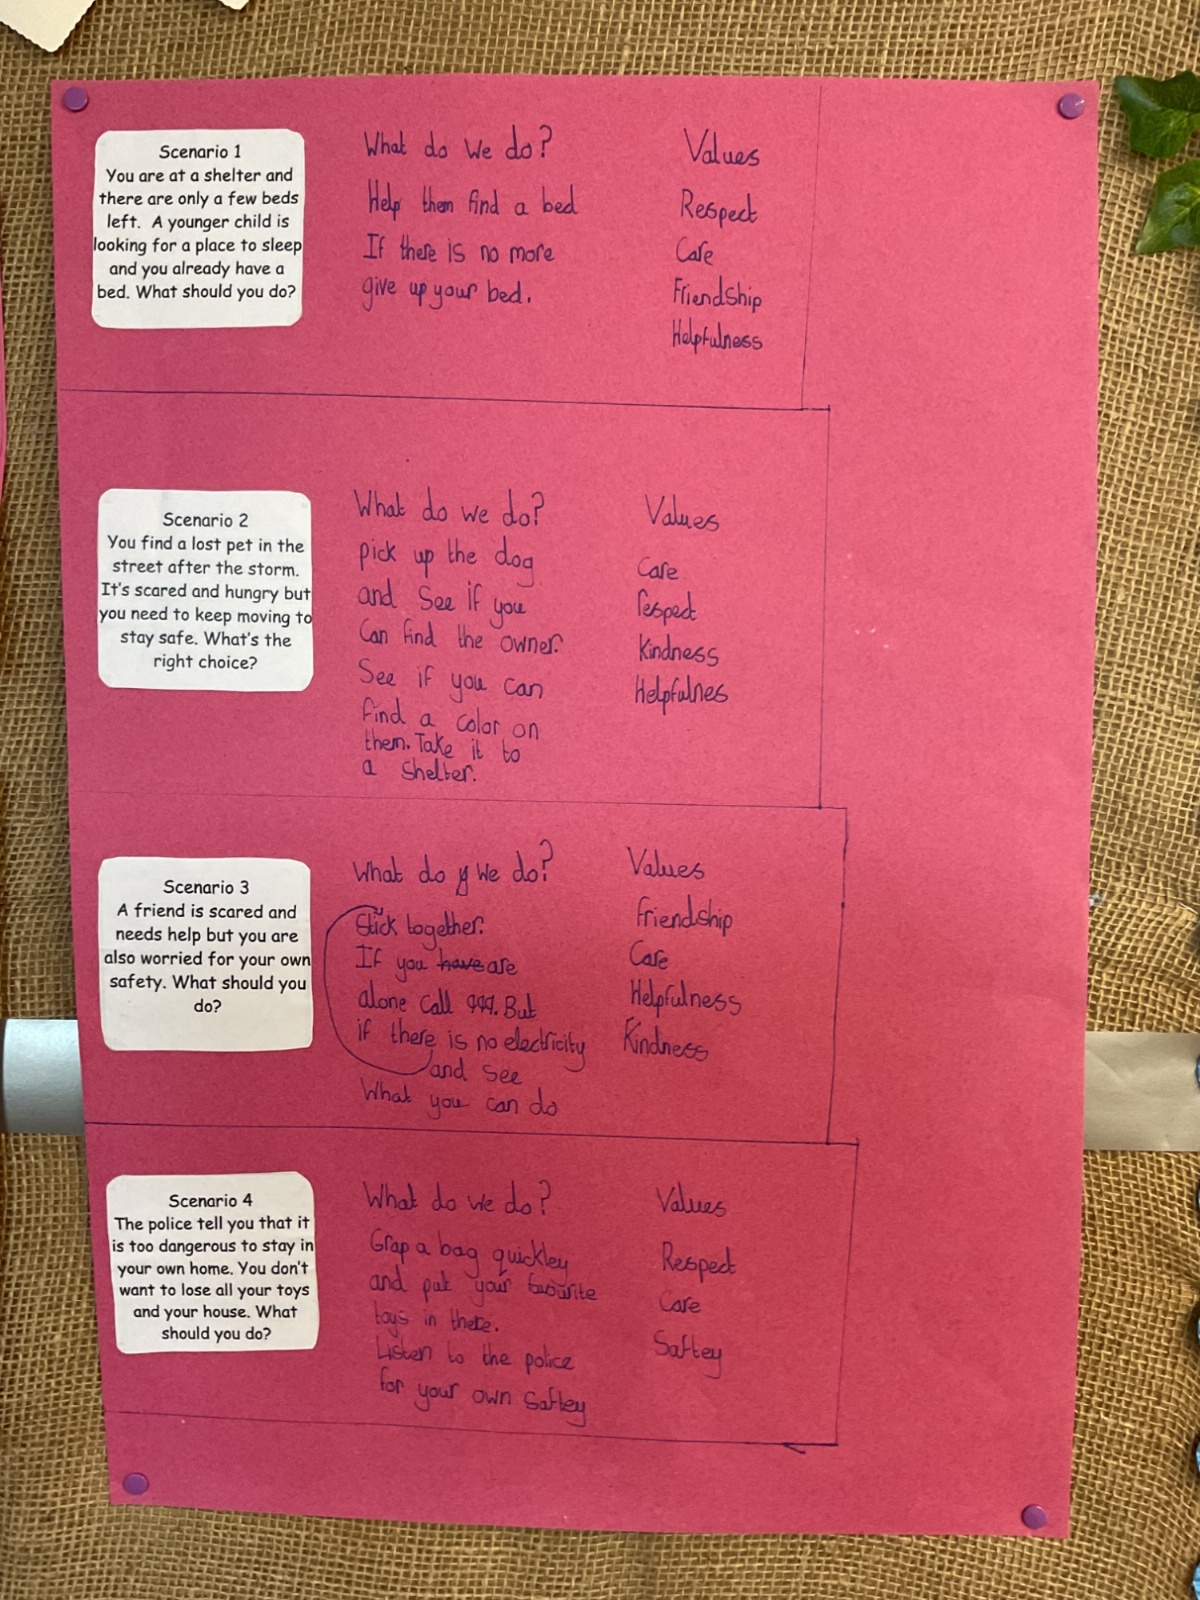 Scenario 1
You are at a shelter and
there are only a few beds
left. A younger child is
looking for a place to sleep
and you already have a
bed. What should you do?
What do we do?
Help them find a bed
If there is no more
give up your bed.
Values
Respect
Care
Friendship
Helpfulness
Scenario 2
You find a lost pet in the
street after the storm.
It's scared and hungry but
you need to keep moving to
stay safe. What's the
right choice?
What do we do?
pick up the dog
and See if you
Can find the owner.
See if you can
find a color on
them. Take it to
a shelter.
Values
Care
respect
Kindness
Helpfulnes
Scenario 3
A friend is scared and
needs help but you are
also worried for your own
safety. What should you
do?
What do y We do?
Stick together.
If you have are
alone call 999. But
if there is no electricity
and see
What you can do
Values
Friendship
Care
Helpfulness
Kindness
Scenario 4
The police tell you that it
is too dangerous to stay in
your own home. You don't
want to lose all your toys
and your house. What
should you do?
What do we do?
Grap a bag quickley
and put your favourite
toys in there.
Listen to the police
for your own Saftey
Values
Respect
Care
Saftey